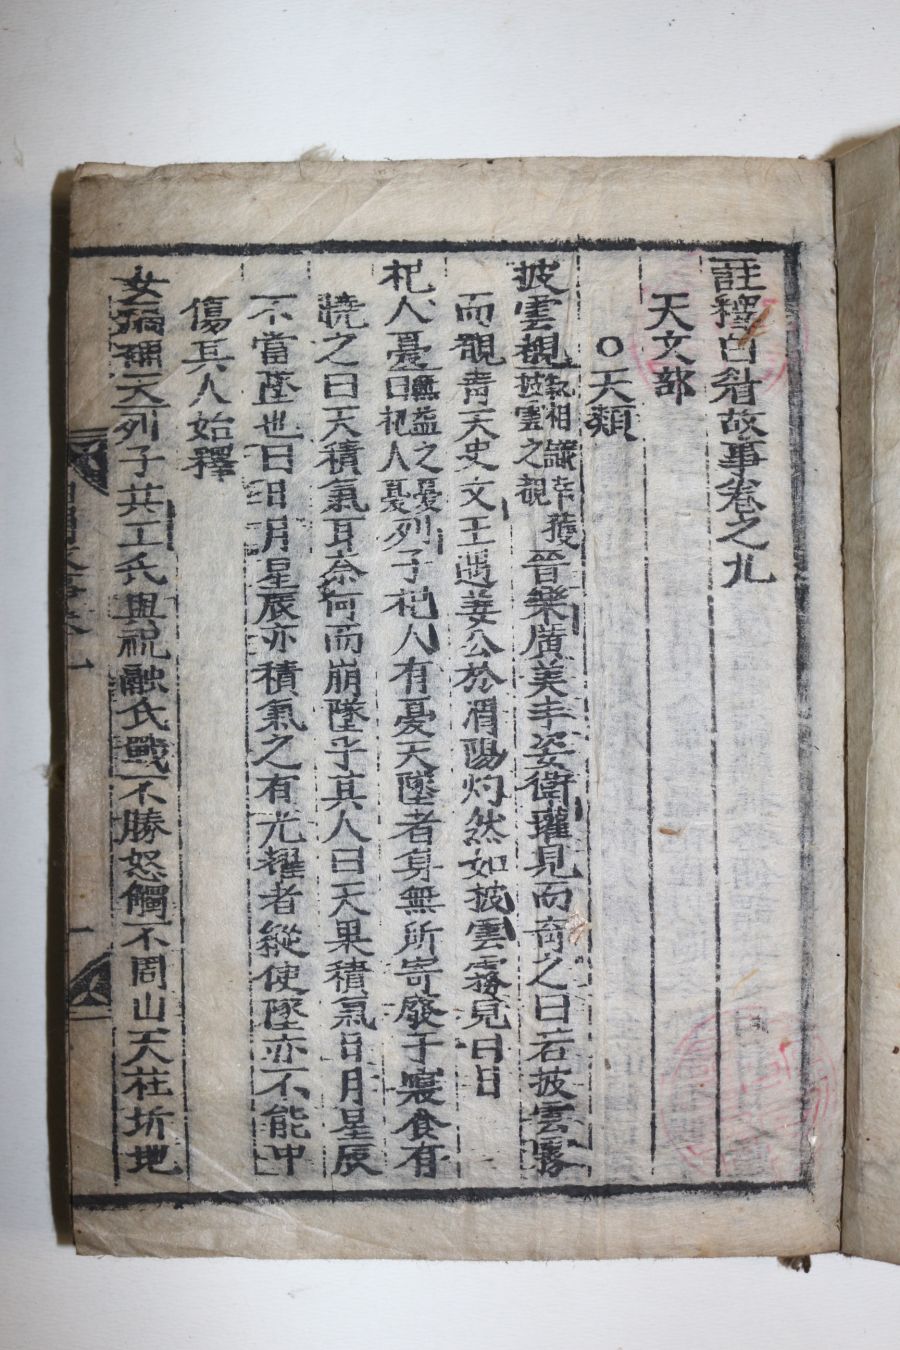 註釋白眉故事卷之九
天文部
○天類
披雲覩氣相識幸獲披雲之覩晉樂廣美丰姿衛瓘見而奇之曰若披雲霧
而覩青天史文王遇姜公於渭陽灼然如披雲霧見白日
杞人憂無益之憂曰杞人憂列子杞人有憂天墜者身無所寄廢于寢食有
曉之曰天積氣耳奈何而崩墜乎其人曰天果積氣日月星辰
不當墜也曰日月星辰亦積氣之有光耀者縱使墜亦不能中
傷其人始釋
女媧補天列子共工氏與祝融氏戰不勝怒觸不周山天柱折地